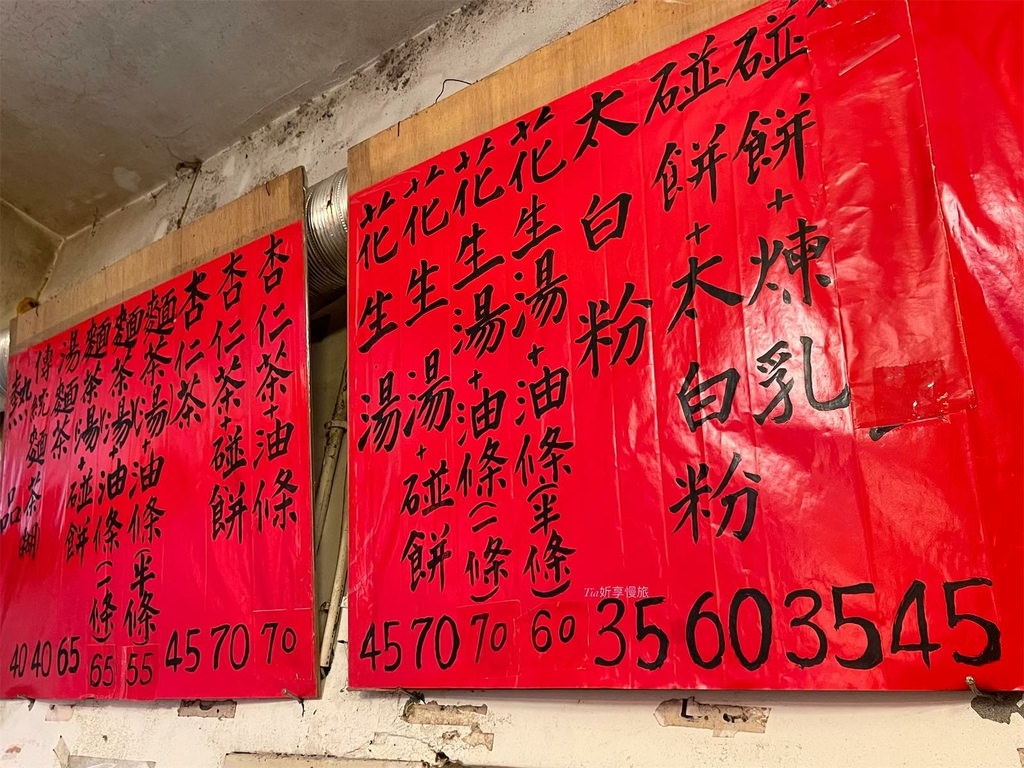 45
碰餅+煉乳 35
碰餅+太白粉 60
太白粉 35
花生湯+油條(半條) 60
花生湯+油條(一條) 70
花生湯+碰餅 70
花生湯 45
杏仁茶+油條 70
杏仁茶+碰餅 70
杏仁茶 45
麵茶(湯)+油條(半條) 55
麵茶(湯)+油條(一條) 65
麵茶(湯)+碰餅 65
湯麵茶 40
傳統麵茶糊 40
熱品
Tia妡享慢旅